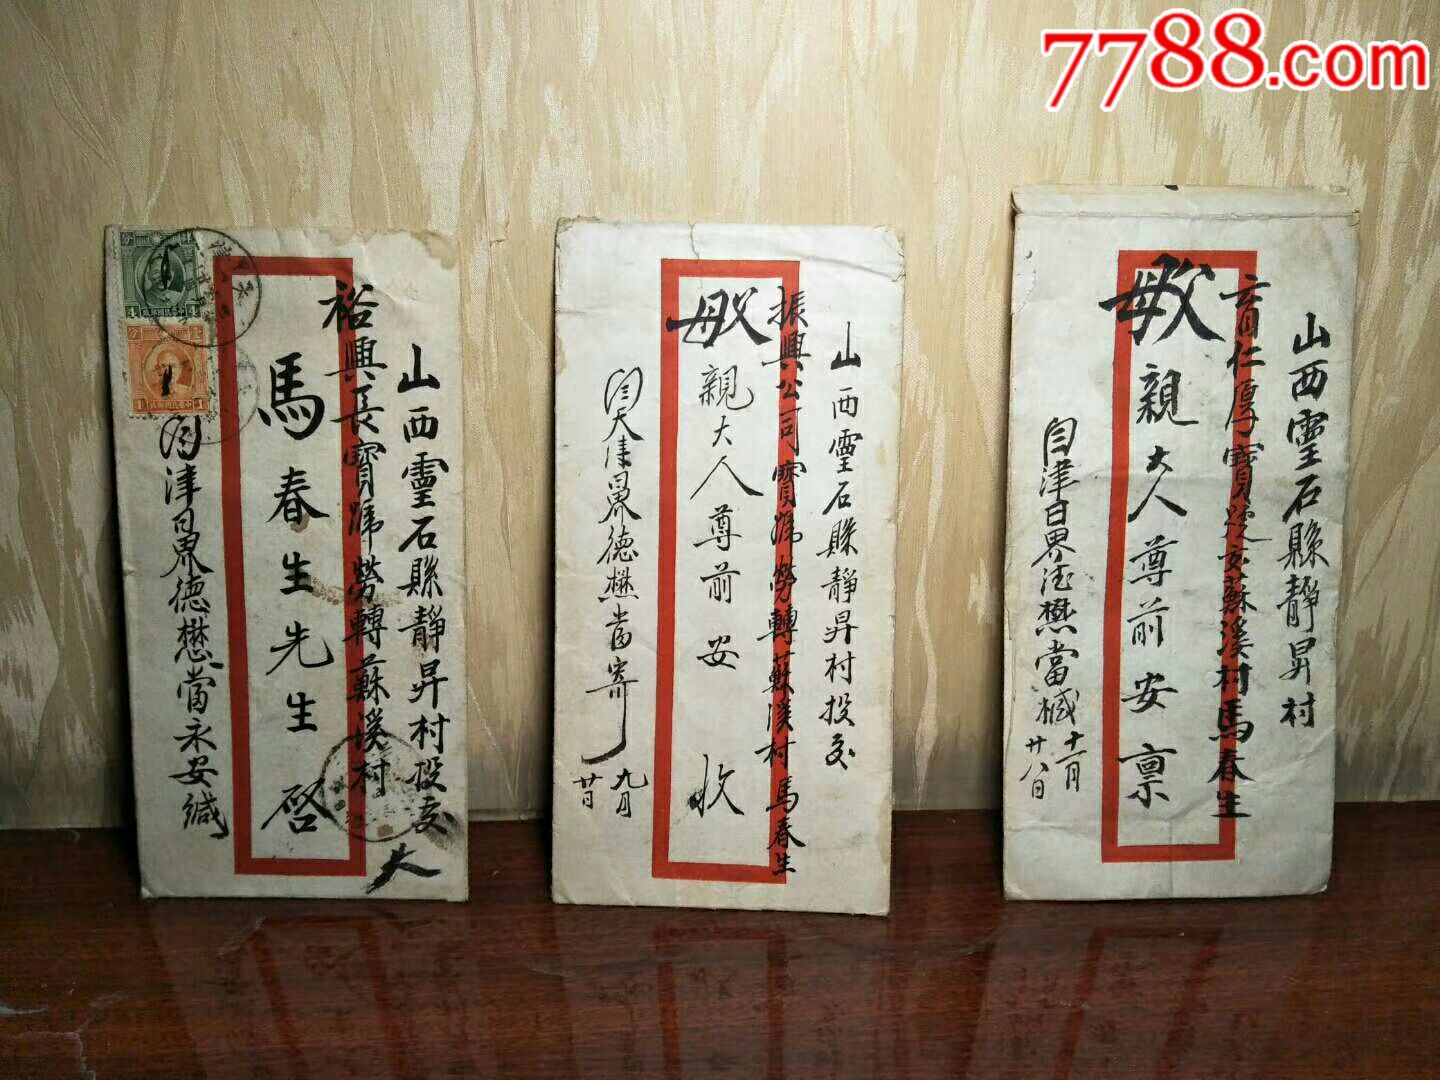 7788.com
山西靈石縣靜昇村投交
裕興長寶號勞轉蘇溪村
馬春生先生 啓
自津日界德懋當永安緘
大
4
1
山西靈石縣靜昇村投交
振興公司寶號勞轉蘇溪村馬春生
親大人尊前安 收
自天津日界德懋當寄
九月
廿日
山西靈石縣靜昇村
仁厚寶號交蘇溪村馬春生
親大人尊前安稟
自津日界德懋當椷
十一月
廿八日